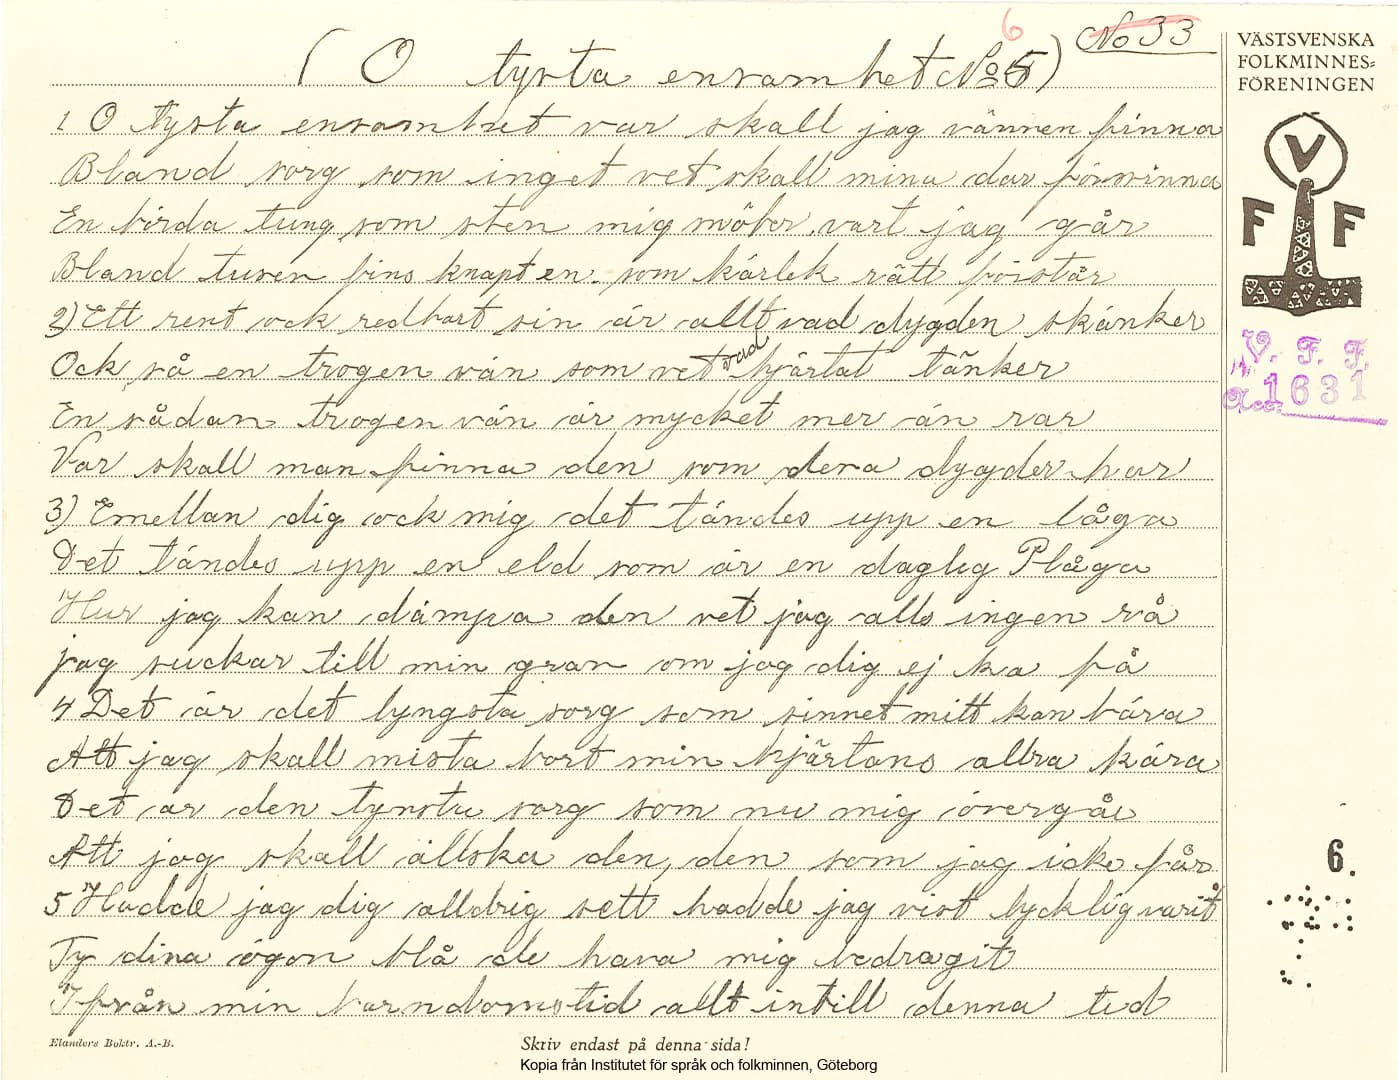 6
No 33
( O tysta ensamhet No 5)
1 O tysta ensamhet var skall jag vännen finna
Bland sorg som inget vet skall mina dar försvinna
En börda tung som sten mig möter vart jag går
Bland tusen fins knapt en som kärlek rätt förstår
2) Ett rent ock redbart sin är allt vad dygden skänker
Ock så en trogen vän som vet vad hjärtat tänker
En sådan trogen vän är mycket mer än rar
Var skall man finna den som dera dygder har
3) Emellan dig ock mig det tändes upp en låga
Det tändes upp en eld som är en daglig Plåga
Hur jag kan dämpa den vet jag alls ingen rå
jag suckar till min grav om jag dig ej ka få
4 Det är det tyngsta sorg som sinnet mitt kan bära
Att jag skall mista bort min hjärtans allra kära
Det är den tynsta sorg som nu mig övergår
Att jag skall älska den, den som jag icke får
5 Hadde jag dig alldrig sett hadde jag vist lycklig varit
Ty dina ögon blå de hava mig bedragit
Ifrån min barndomstid allt intill denna tid
VÄSTSVENSKA
FOLKMINNES-
FÖRENINGEN
V
F F
V. F. F.
Acc. 1631
6.
Elanders Boktr. A.-B.
Skriv endast på denna sida!
Kopia från Institutet för språk och folkminnen, Göteborg